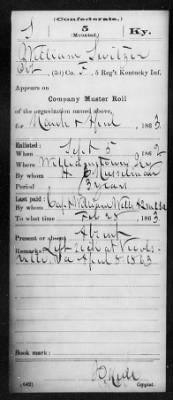 (Confederate.)
S 5 Ky.
(Mounted.)
William Switzer
Pvt , (2d) Co. F, 5 Reg't Kentucky Inf.
Appears on
Company Muster Roll
of the organization named above,
for March & April , 1863.
Enlisted:
When Sept 5 , 1862
Where Williamstown Ky
By whom A. Musselman
Period 3 years
Last paid:
By whom Capt William
To what time Feb 28 , 1863.
Present or absent Absent
Remarks: Left sick at
ville, Va April 8 1863
Book mark:
(642)
Copyist.